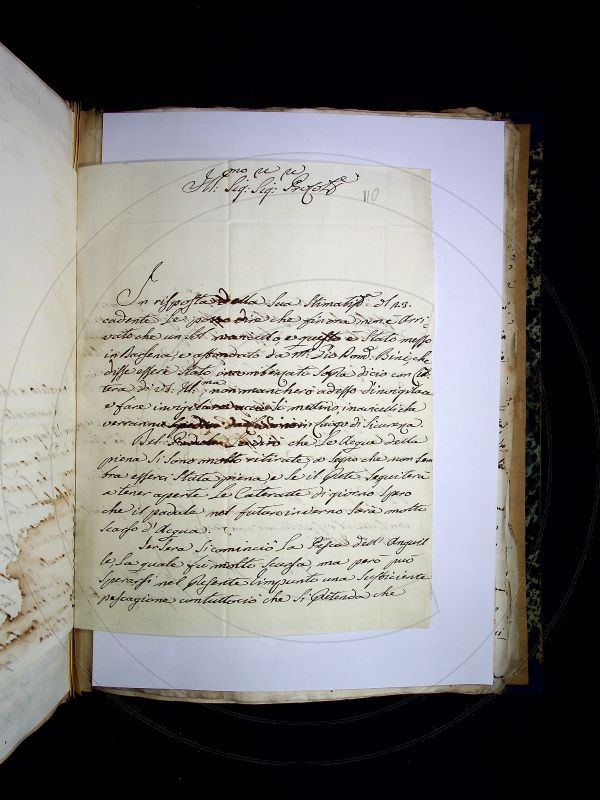 Ill:mo Sig:re Sig:re
110
In risposta della Sua Stimatiss. del 23.
cadente Le posso dire che finora non è Arri-
vato che un navicello, e questo è Stato messo
in Darsena, e affondato da Bini, che
disse essere Stato incombensato Lo già di ciò con Let-
tera di VS. Ill:ma non mancherò adesso d'invigilare
e fare invigilare acciò Si mettino i navicelli che
verranno in Luogo di Sicurezza.
Del Padule Le dirò che Le Acque della
piena Si Sono molto ritirate, a Segno che non Sem-
bra esserci Stata piena, e Se il Prete Seguiterà
a tener aperte Le Cateratte di giorno Spero
che il padule nel futuro inverno Sarà molto
Scarso d'Acqua.
Jer Sera Si cominciò La Pesca dell' Anguil-
le La quale fù molto Scarsa, ma però può
Sperarsi nel Presente una Sufficiente
pescagione contuttociò che Si Pretenda che